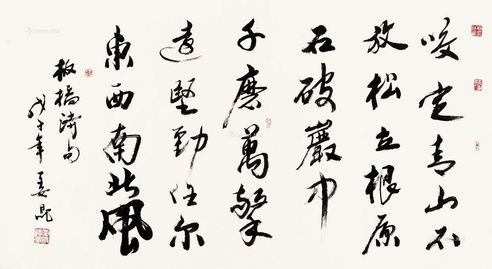 咬定青山不
放松立根原
在破巖中
千磨萬擊
還堅勁任尔
東西南北風
板橋詩句
戊子年姜昆